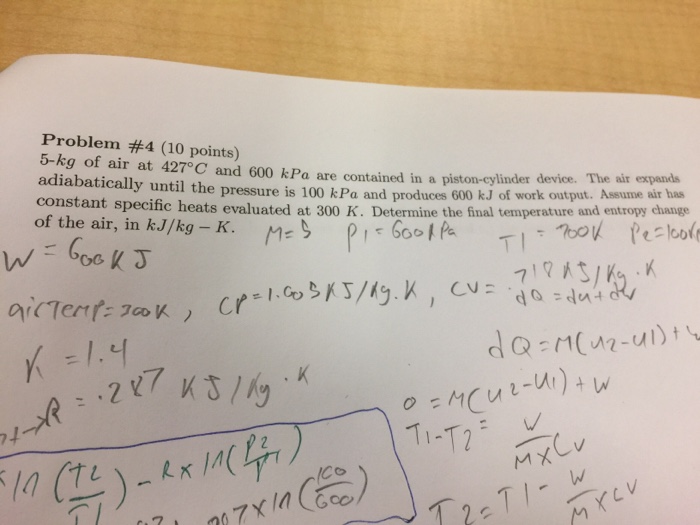 Problem #4 (10 points)
5-kg of air at 427°C and 600 kPa are contained in a piston-cylinder device. The air expands
adiabatically until the pressure is 100 kPa and produces 600 kJ of work output. Assume air has
constant specific heats evaluated at 300 K. Determine the final temperature and entropy change
of the air, in kJ/kg − K.
M=5 P1=600kPa T1=700K P2=100kP
W=600KJ
airTemp=300K, CP=1.005KJ/kg.K, CV=.718KJ/kg.K
dQ=du+dw
K=1.4
dQ=M(u2-u1)+
R=.287 KJ/kg.K
0=M(u2-u1)+W
T1-T2= W/MxCv
ln(T2/T1)-Rxln(P2/P1)
xln(100/600)
T2=T1-W/MxCv